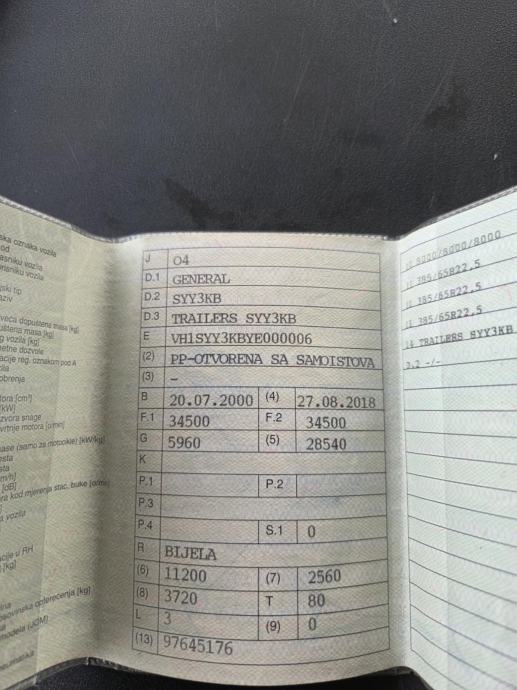 ska oznaka vozila
od
asniku vozila
risniku vozila
jski tip
aziv
veća dopuštena masa [kg]
uštena masa [kg]
g vozila [kg]
metne dozvole
acije reg. oznakom pod A
zila
obrenje
tora [cm³]
[kW]
zvora snage
vrtnje motora [o/min]
mase (samo za motocikle) [kW/kg]
esta
sta
m/h]
[dB]
ora kod mjerenja stac. buke [o/min]
a vozila
acije u RH
[kg]
ina
osovinska opterećenja [kg]
modela (JCM)
neumatika
J O4
D.1 GENERAL
D.2 SYY3KB
D.3 TRAILERS SYY3KB
E VH1SYY3KBYE000006
(2) PP-OTVORENA SA SAMOISTOVA
(3) –
B 20.07.2000 (4) 27.08.2018
F.1 34500 F.2 34500
G 5960 (5) 28540
K
P.1 P.2
P.3
P.4 S.1 0
R BIJELA
(6) 11200 (7) 2560
(8) 3720 T 80
L 3 (9) 0
(13) 97645176
8000/8000/8000
385/65R22,5
385/65R22,5
385/65R22,5
TRAILERS SYY3KB
-/-